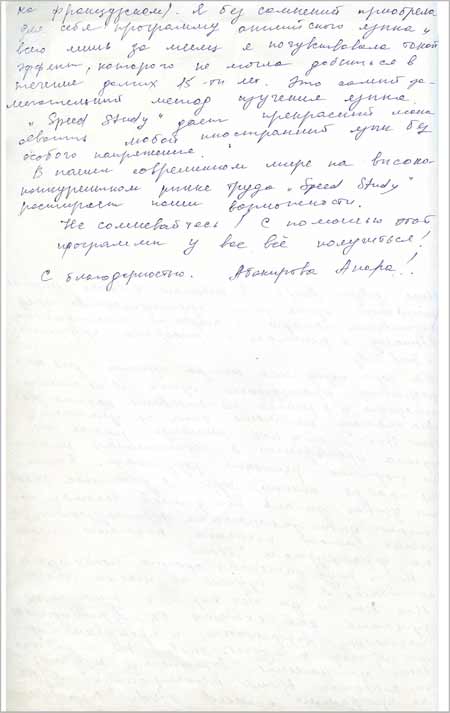 на французском). Я без сомнений приобрела
для себя программу английского языка и
всего лишь за месяц я почувствовала такой
эффект, которого не могла добиться в
течение долгих 15-ти лет. Это самый за-
мечательный метод изучения языка.
„Speed Study" дает прекрасный шанс
освоить любой иностранный язык без
особого напряжения.
В нашем современном мире на высоко-
конкурентном рынке труда „Speed Study"
расширяет наши возможности.
Не сомневайтесь! С помощью этой
программы у вас всё получиться!
С благодарностью. Абакирова Анара!